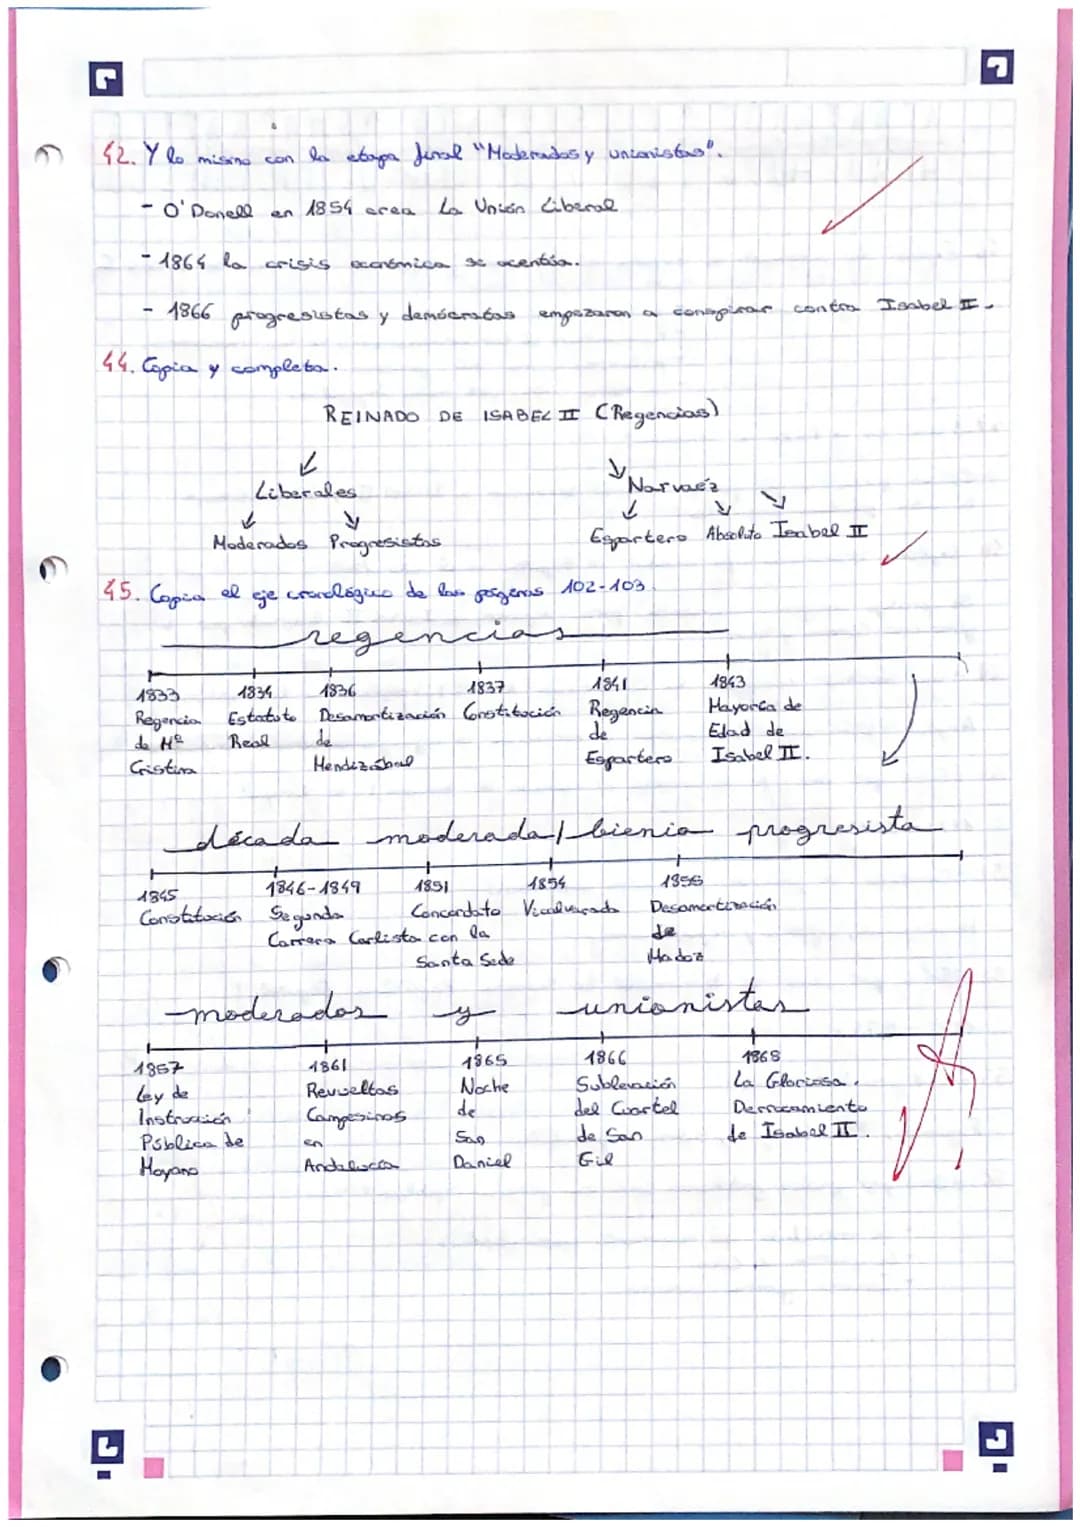 42. Y lo mismo con la etapa final "Moderados y unionistas".
- O'Donell en 1854 crea La Unión Liberal
- 1864 la crisis económica se acentúa.
- 1866 progresistas y demócratas empezaron a conspirar contra Isabel II.
44. Copia y completa.
REINADO DE ISABEL II (Regencias)
Liberales
Narvaéz
Moderados Progresistas
Espartero Absoluto Isabel II
45. Copia el eje cronológico de las páginas 102-103.
regencias
1833 1834 1836 1837 1841 1843
Regencia Estatuto Desamortización Constitución Regencia Mayoría de
de Mª Real de de Edad de
Cristina Mendizábal Espartero Isabel II.
década moderada/bienio progresista
1845 1846-1849 1851 1854 1856
Constitución Segunda Concordato Vicalvarada Desamortización
Carrera Carlista con la de
Santa Sede Madoz
moderados y unionistas
1857 1861 1865 1866 1868
Ley de Revueltas Noche Sublevación La Gloriosa.
Instrucción Campesinos de del Cuartel Derrocamiento
Pública de en San de San de Isabel II.
Moyano Andalucía Daniel Gil